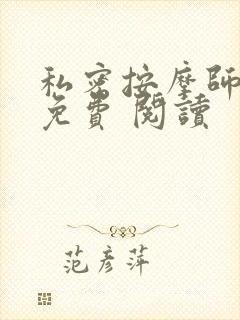 私密按摩師
免費 閱讀
范彥萍